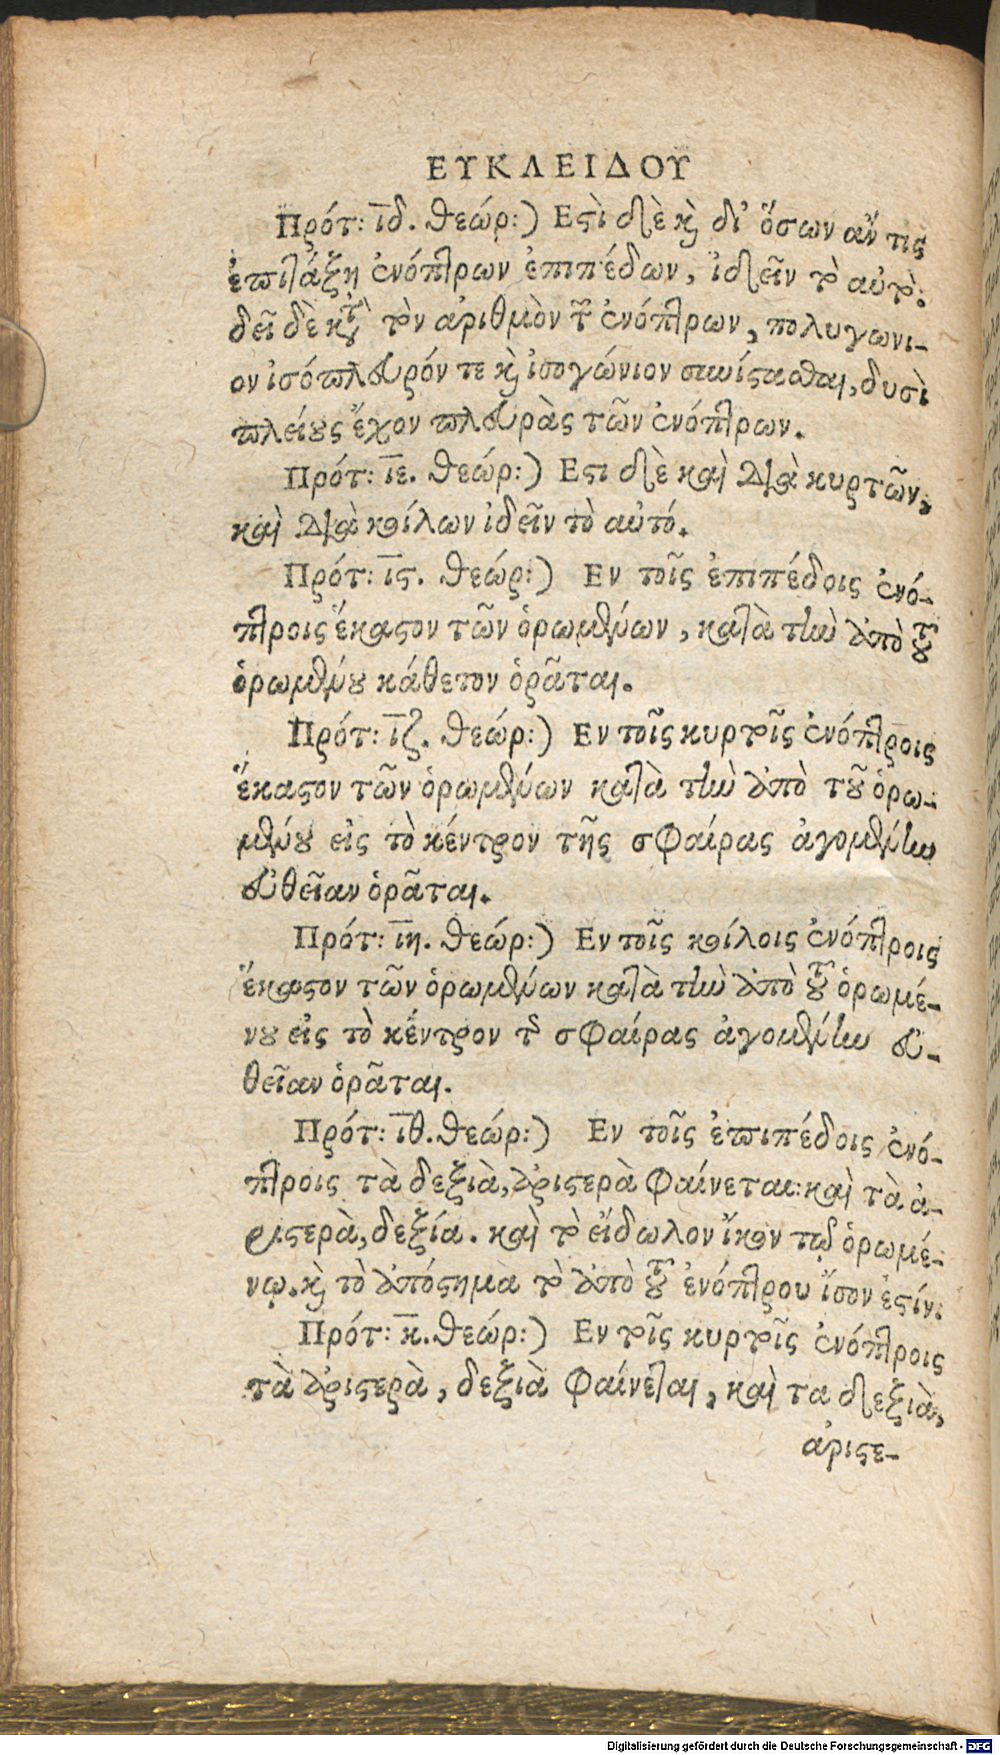 ΕΥΚΛΕΙΔΟΥ
Πρότ: ι̅δ. θεώρ:) Εϛὶ δὲ κὶ δι’ ὅσων ἄν τις
ἐπιτάξη ἐνόπτρων ἐπιπέδων, ἰδεῖν τὸ αὐτό:
δεῖ δὲ κατὰ τὸν ἀριθμὸν τῶν ἐνόπτρων, πολυγωνι-
ον ἰσόπλευρόν τε κὶ ἰσογώνιον συνίϛαϑαι, δυσὶ
πλείȣς ἔχον πλευρὰς τῶν ἐνόπτρων.
Πρότ: ι̅ε. θεώρ:) Εϛι δὲ καὶ διὰ κυρτῶν,
καὶ διὰ κοίλων ἰδεῖν τὸ αὐτό.
Πρότ: ι̅ϛ. θεώρ:) Εν τοῖς ἐπιπέδοις ἐνό-
πτροις ἕκαϛον τῶν ὁρωμένων, κατὰ τὴν ἀπὸ τȣ
ὁρωμένȣ κάθετον ὁρᾶται.
Πρότ: ι̅ζ. θεώρ:) Εν τοῖς κυρτοῖς ἐνόπτροις
ἕκαϛον τῶν ὁρωμένων κατὰ τὴν ἀπὸ τȣ͂ ὁρω-
μένȣ εἰς τὸ κέντρον τῆς σφαίρας ἀγομένην
εὐθεῖαν ὁρᾶται.
Πρότ: ι̅η. θεώρ:) Εν τοῖς κοίλοις ἐνόπτροις
ἕκαϛον τῶν ὁρωμένων κατὰ τὴν ἀπὸ τȣ ὁρωμέ-
νȣ εἰς τὸ κέντρον τῆς σφαίρας ἀγομένην εὐ-
θεῖαν ὁρᾶται.
Πρότ: ι̅θ. θεώρ:) Εν τοῖς ἐπιπέδοις ἐνό-
πτροις τὰ δεξιὰ, ἀριϛερὰ φαίνεται: καὶ τὰ ἀ-
ριϛερὰ, δεξία. καὶ τὸ εἴδωλον ἴκον τῷ ὁρωμέ-
νῳ. κὶ τὸ ἀπόϛημα τὸ ἀπὸ τȣ ἐνόπτρου ἴσον ἐϛίν:
Πρότ: κ̅. θεώρ:) Εν τοῖς κυρτοῖς ἐνόπτροις
τὰ ἀριϛερὰ, δεξιὰ φαίνεται, καὶ τα δεξιὰ,
ἀριϛε-
Digitalisierung gefördert durch die Deutsche Forschungsgemeinschaft - DFG